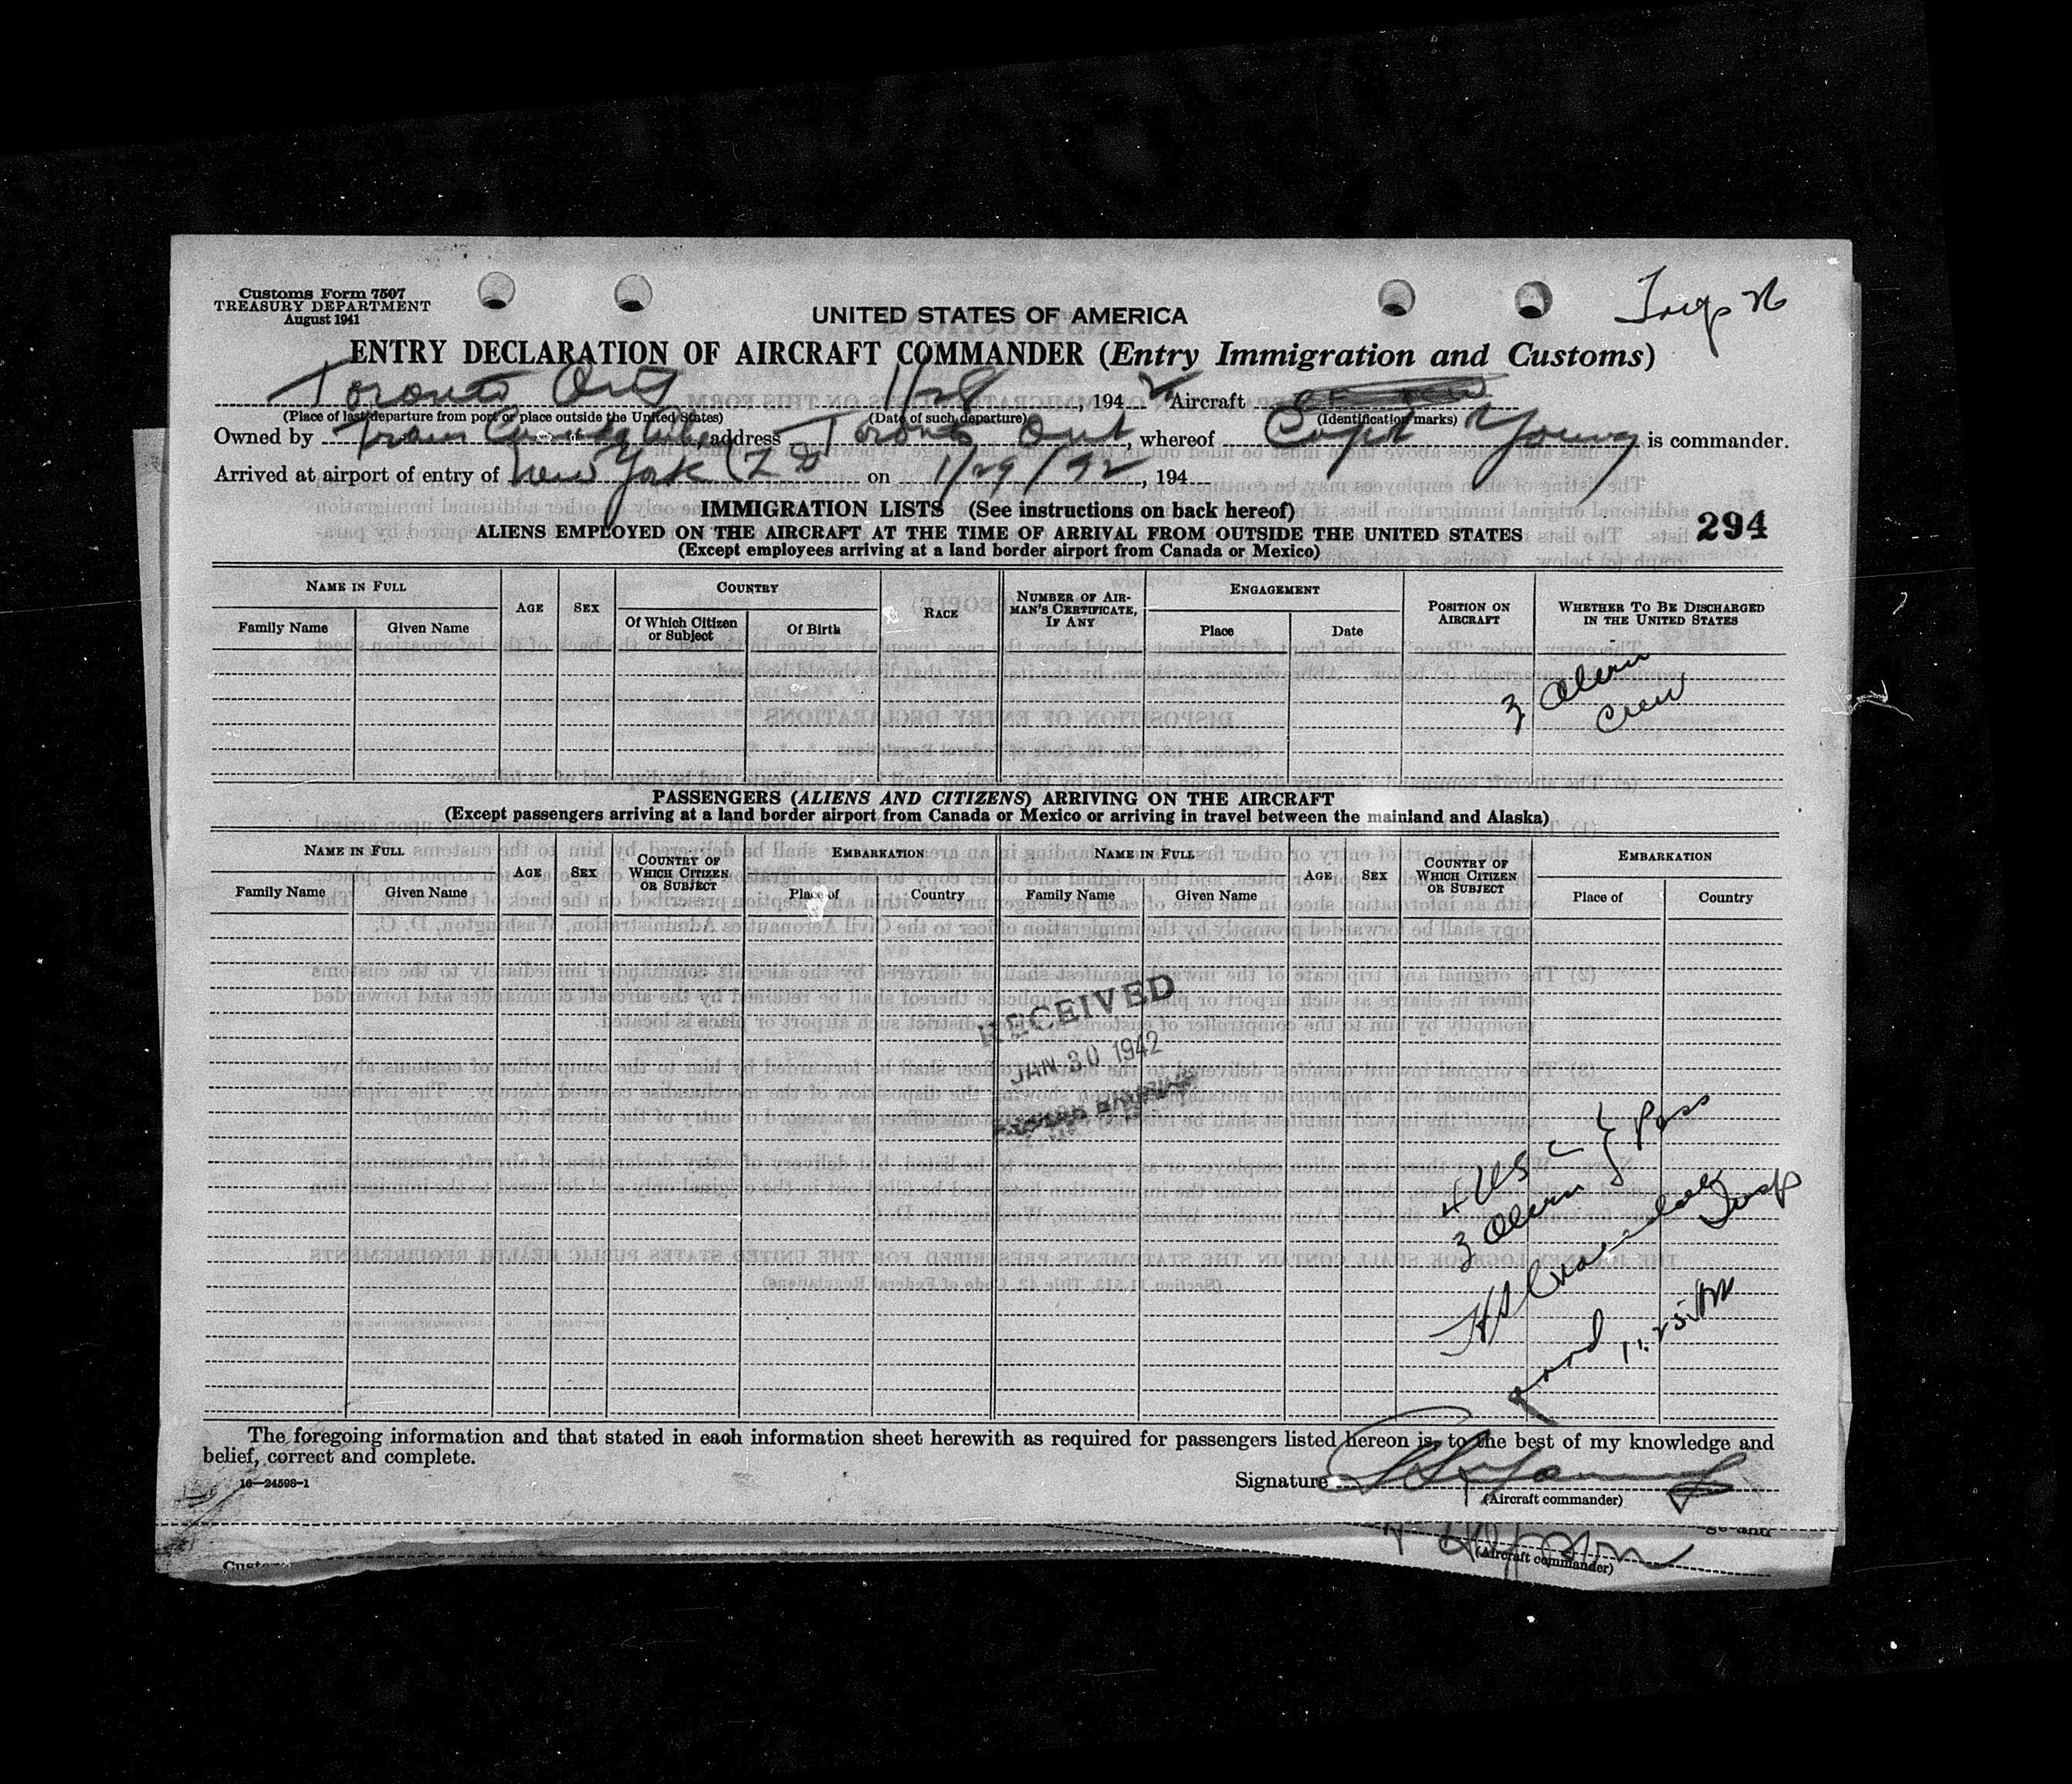 Customs Form 7507
TREASURY DEPARTMENT
August 1941
UNITED STATES OF AMERICA
Trip 76
ENTRY DECLARATION OF AIRCRAFT COMMANDER (Entry Immigration and Customs)
Toronto Ont 1/28, 1942 Aircraft
(Place of last departure from port or place outside the United States) (Date of such departure) (Identification marks)
Owned by Trans Canada address Toronto Ont, whereof Capt Young is commander.
Arrived at airport of entry of New York on 1/29/42, 194
IMMIGRATION LISTS (See instructions on back hereof)
294
ALIENS EMPLOYED ON THE AIRCRAFT AT THE TIME OF ARRIVAL FROM OUTSIDE THE UNITED STATES
(Except employees arriving at a land border airport from Canada or Mexico)
NAME IN FULL
Family Name Given Name
AGE
SEX
COUNTRY
Of Which Citizen or Subject
Of Birth
RACE
NUMBER OF AIRMAN'S CERTIFICATE, IF ANY
ENGAGEMENT
Place Date
POSITION ON AIRCRAFT
WHETHER TO BE DISCHARGED IN THE UNITED STATES
3 Alien
Crew
PASSENGERS (ALIENS AND CITIZENS) ARRIVING ON THE AIRCRAFT
(Except passengers arriving at a land border airport from Canada or Mexico or arriving in travel between the mainland and Alaska)
NAME IN FULL
Family Name Given Name
AGE
SEX
COUNTRY OF WHICH CITIZEN OR SUBJECT
EMBARKATION
Place of Country
NAME IN FULL
Family Name Given Name
AGE
SEX
COUNTRY OF WHICH CITIZEN OR SUBJECT
EMBARKATION
Place of Country
RECEIVED
JAN 30 1942
4 USC
3 Alien } Pass
Insp
11.25 AM
The foregoing information and that stated in each information sheet herewith as required for passengers listed hereon is, to the best of my knowledge and
belief, correct and complete.
16—24598-1
Signature
(Aircraft commander)
ge and
(Aircraft commander)